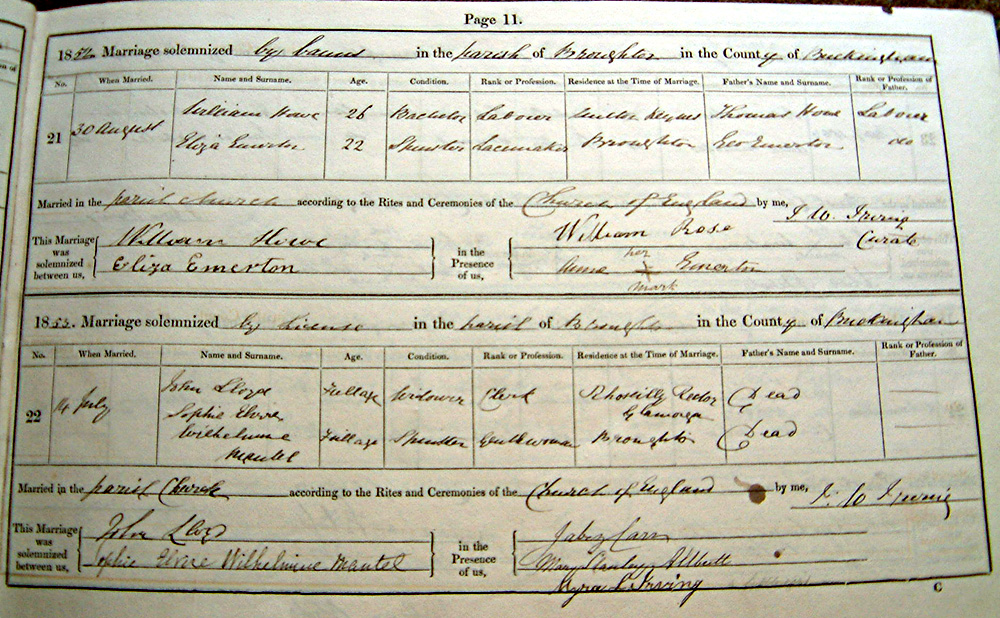 Page 11.
1852 Marriage solemnized by banns in the parish of Broughton in the County of Buckingham
No. When Married. Name and Surname. Age. Condition. Rank or Profession. Residence at the Time of Marriage. Father's Name and Surname. Rank or Profession of Father.
21 30 August William Howe 26 Bachelor Labourer Thomas Howe Labourer
Eliza Emerton 22 Spinster Lacemaker Broughton Geo Emerton do
Married in the parish church according to the Rites and Ceremonies of the Church of England by me, J. W. Irving
Curate
This Marriage was solemnized between us, William Howe in the Presence of us, William Rose
Eliza Emerton Anne her + mark Emerton
1853. Marriage solemnized by License in the parish of Broughton in the County of Buckingham
No. When Married. Name and Surname. Age. Condition. Rank or Profession. Residence at the Time of Marriage. Father's Name and Surname. Rank or Profession of Father.
22 14 July John Lloyd Full age Widower Clerk Rhossilly Rector Glamorgan Dead
Sophie Elvire Wilhelmine Mantel Full age Spinster Gentlewoman Broughton Dead
Married in the parish Church according to the Rites and Ceremonies of the Church of England by me, J. W. Irving
This Marriage was solemnized between us, John Lloyd in the Presence of us, Jabez Carr
Sophie Elvire Wilhelmine Mantel Mary Stanley Allbutt
Myra L Irving
C